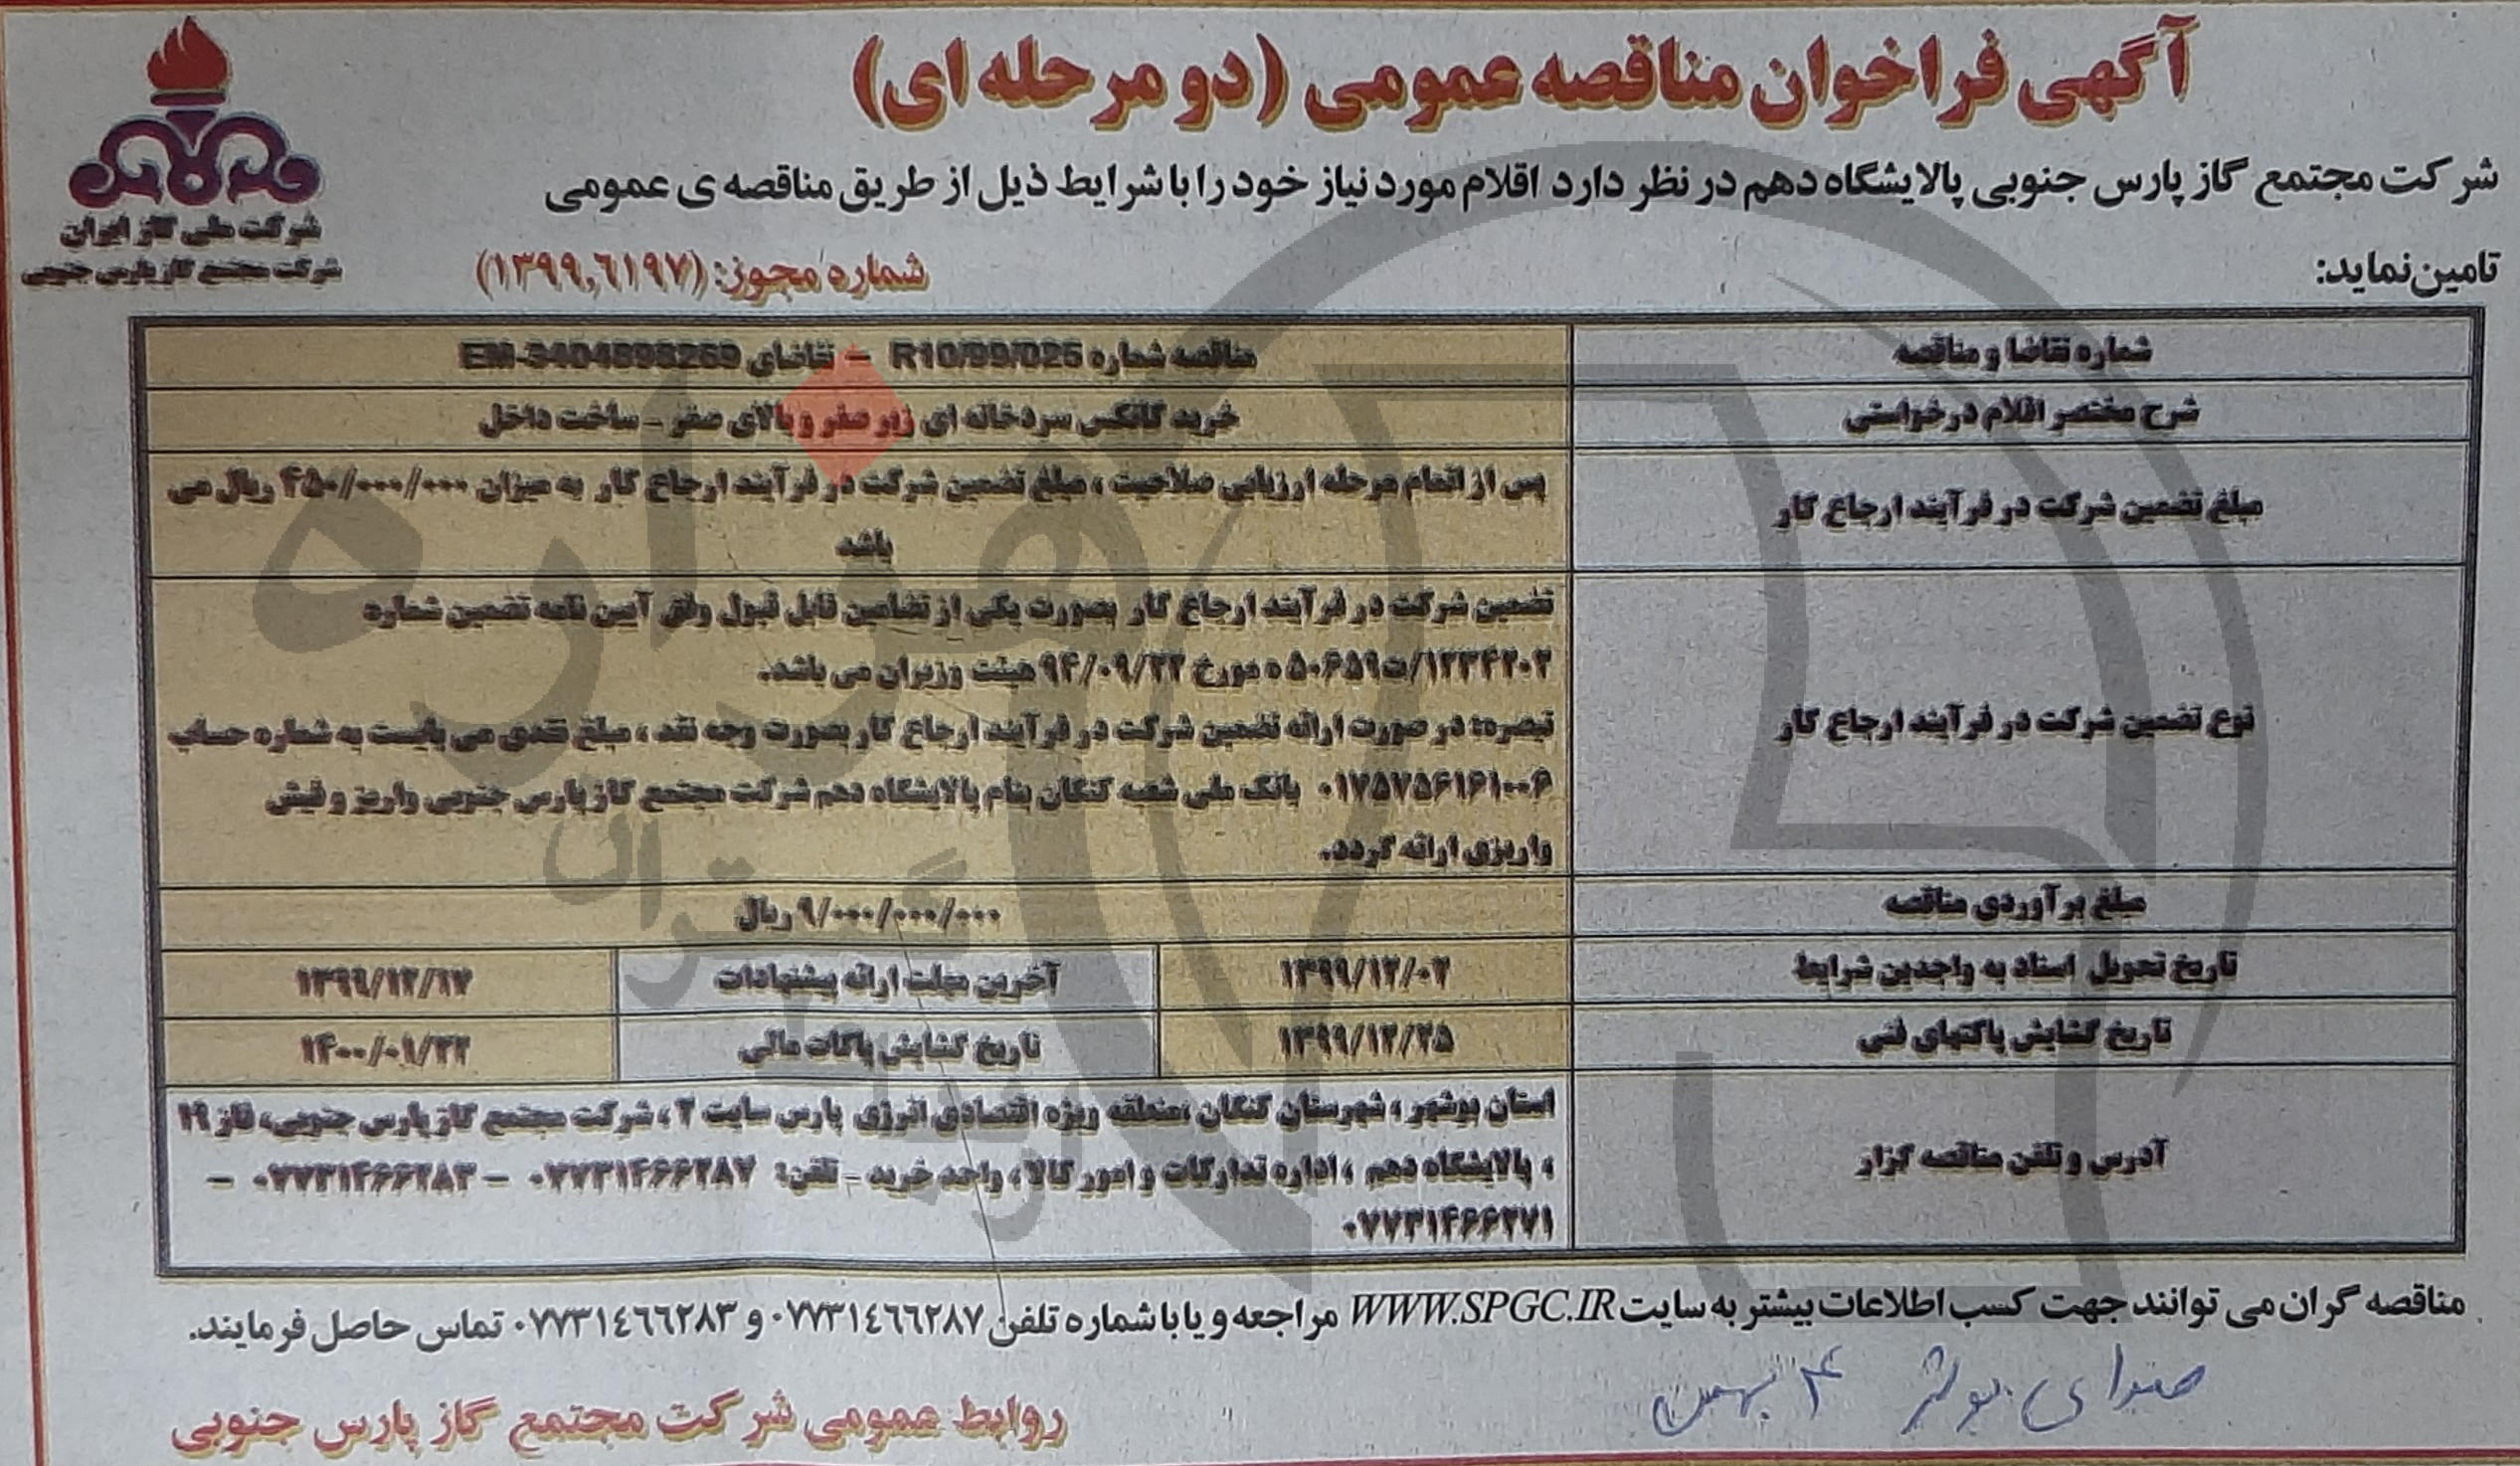 آگهی فراخوان مناقصه عمومی (دو مرحله ای)
شرکت ملی گاز ایران
شرکت مجتمع گاز پارس جنوبی
شرکت مجتمع گاز پارس جنوبی پالایشگاه دهم در نظر دارد اقلام مورد نیاز خود را با شرایط ذیل از طریق مناقصه ی عمومی
تامین نماید:
شماره مجوز: (۱۳۹۹,۶۱۹۷)
شماره تقاضا و مناقصه
مناقصه شماره R10/99/025 – تقاضای
شرح مختصر اقلام درخواستی
خرید کانکس سردخانه ای زیر صفر و بالای صفر - ساخت داخل
مبلغ تضمین شرکت در فرآیند ارجاع کار
پس از اتمام مرحله ارزیابی صلاحیت ، مبلغ تضمین شرکت در فرآیند ارجاع کار به میزان ۴۵۰/۰۰۰/۰۰۰ ریال می
باشد
نوع تضمین شرکت در فرآیند ارجاع کار
تضمین شرکت در فرآیند ارجاع کار بصورت یکی از تضامین قابل قبول وفق آیین نامه تضمین شماره
۱۲۳۴۲۰۲/ت۵۰۶۵۹ ه مورخ ۹۴/۰۹/۲۲ هیئت وزیران می باشد.
تبصره: در صورت ارائه تضمین شرکت در فرآیند ارجاع کار بصورت وجه نقد ، مبلغ نقدی می بایست به شماره حساب
۰۱۷۵۷۵۶۱۶۱۰۰۶ بانک ملی شعبه کنگان بنام پالایشگاه دهم شرکت مجتمع گاز پارس جنوبی واریز و فیش
واریزی ارائه گردد.
مبلغ برآوردی مناقصه
۹/۰۰۰/۰۰۰/۰۰۰ ریال
تاریخ تحویل اسناد به واجدین شرایط
۱۳۹۹/۱۲/۰۲
آخرین مهلت ارائه پیشنهادات
۱۳۹۹/۱۲/۱۷
تاریخ گشایش پاکتهای فنی
۱۳۹۹/۱۲/۲۵
تاریخ گشایش پاکات مالی
۱۴۰۰/۰۱/۲۲
آدرس و تلفن مناقصه گزار
استان بوشهر ، شهرستان کنگان ،منطقه ویژه اقتصادی انرژی پارس سایت ۲ ، شرکت مجتمع گاز پارس جنوبی، فاز ۱۹
، پالایشگاه دهم ، اداره تدارکات و امور کالا ، واحد خرید - تلفن: ۰۷۷۳۱۴۶۶۲۸۷ – ۰۷۷۳۱۴۶۶۲۸۳ –
۰۷۷۳۱۴۶۶۲۷۱
مناقصه گران می توانند جهت کسب اطلاعات بیشتر به سایت WWW.SPGC.IR مراجعه و یا با شماره تلفن ۰۷۷۳۱٤٦٦۲۸۷ و ۰۷۷۳۱٤٦٦۲۸۳ تماس حاصل فرمایند.
صدای بوشهر ۴ بهمن
روابط عمومی شرکت مجتمع گاز پارس جنوبی
هزاره